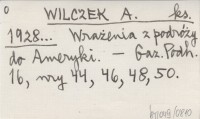 0
WILCZEK A. ks.
1928... Wrażenia z podróży
do Ameryki. — Gaz. Podh.
16, nry 44, 46, 48, 50.